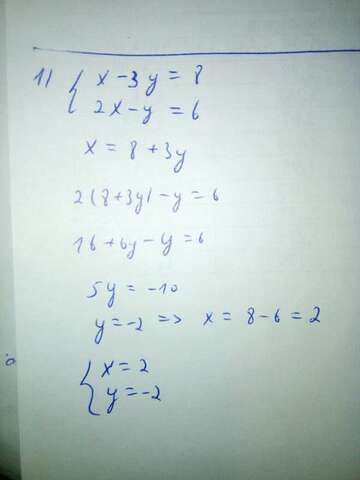 1) { x - 3y = 8
2x - y = 6
x = 8 + 3y
2(8 + 3y) - y = 6
16 + 6y - y = 6
5y = -10
y = -2 => x = 8 - 6 = 2
{ x = 2
y = -2